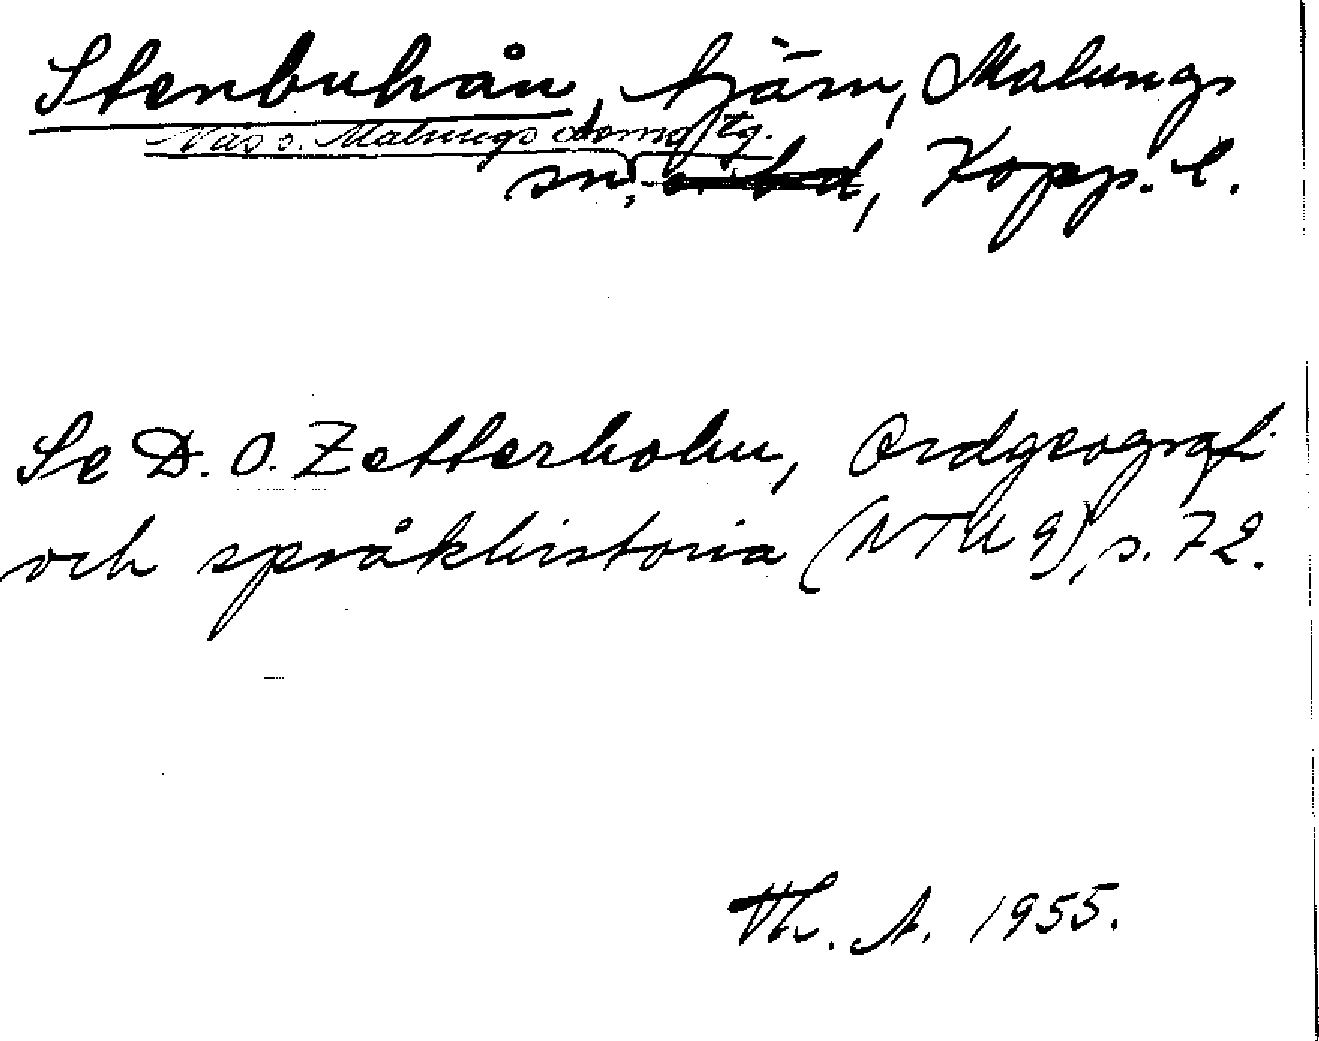 Stenbuhån, tjärn, Malungs
Näs o. Malungs domsg tg.
sn, , Kopp. l.
Se D. O. Zetterholm, Ordgeografi
och språkhistoria (NTU 9), s. 72.
Th. A. 1955.